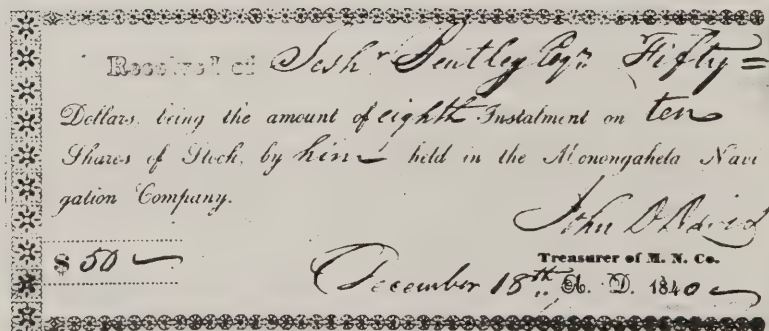 Received of Sesh.r Bentley Esqr. Fifty =
Dollars, being the amount of eighth Instalment on ten
Shares of Stock, by him held in the Monongahela Navi
gation Company.
John D
Treasurer of M. N. Co.
$ 50
December 18th A. D. 1840